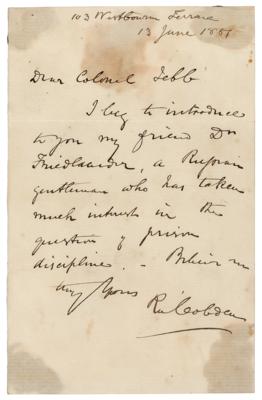 103 Westbourn Terrace
13 June 1851
Dear Colonel Jebb
I beg to introduce
to you my friend Dr
Friedlaander, a Russian
gentleman who has taken
much interest in the
question of prison
discipline. — Believe me
Yours
Rd Cobden